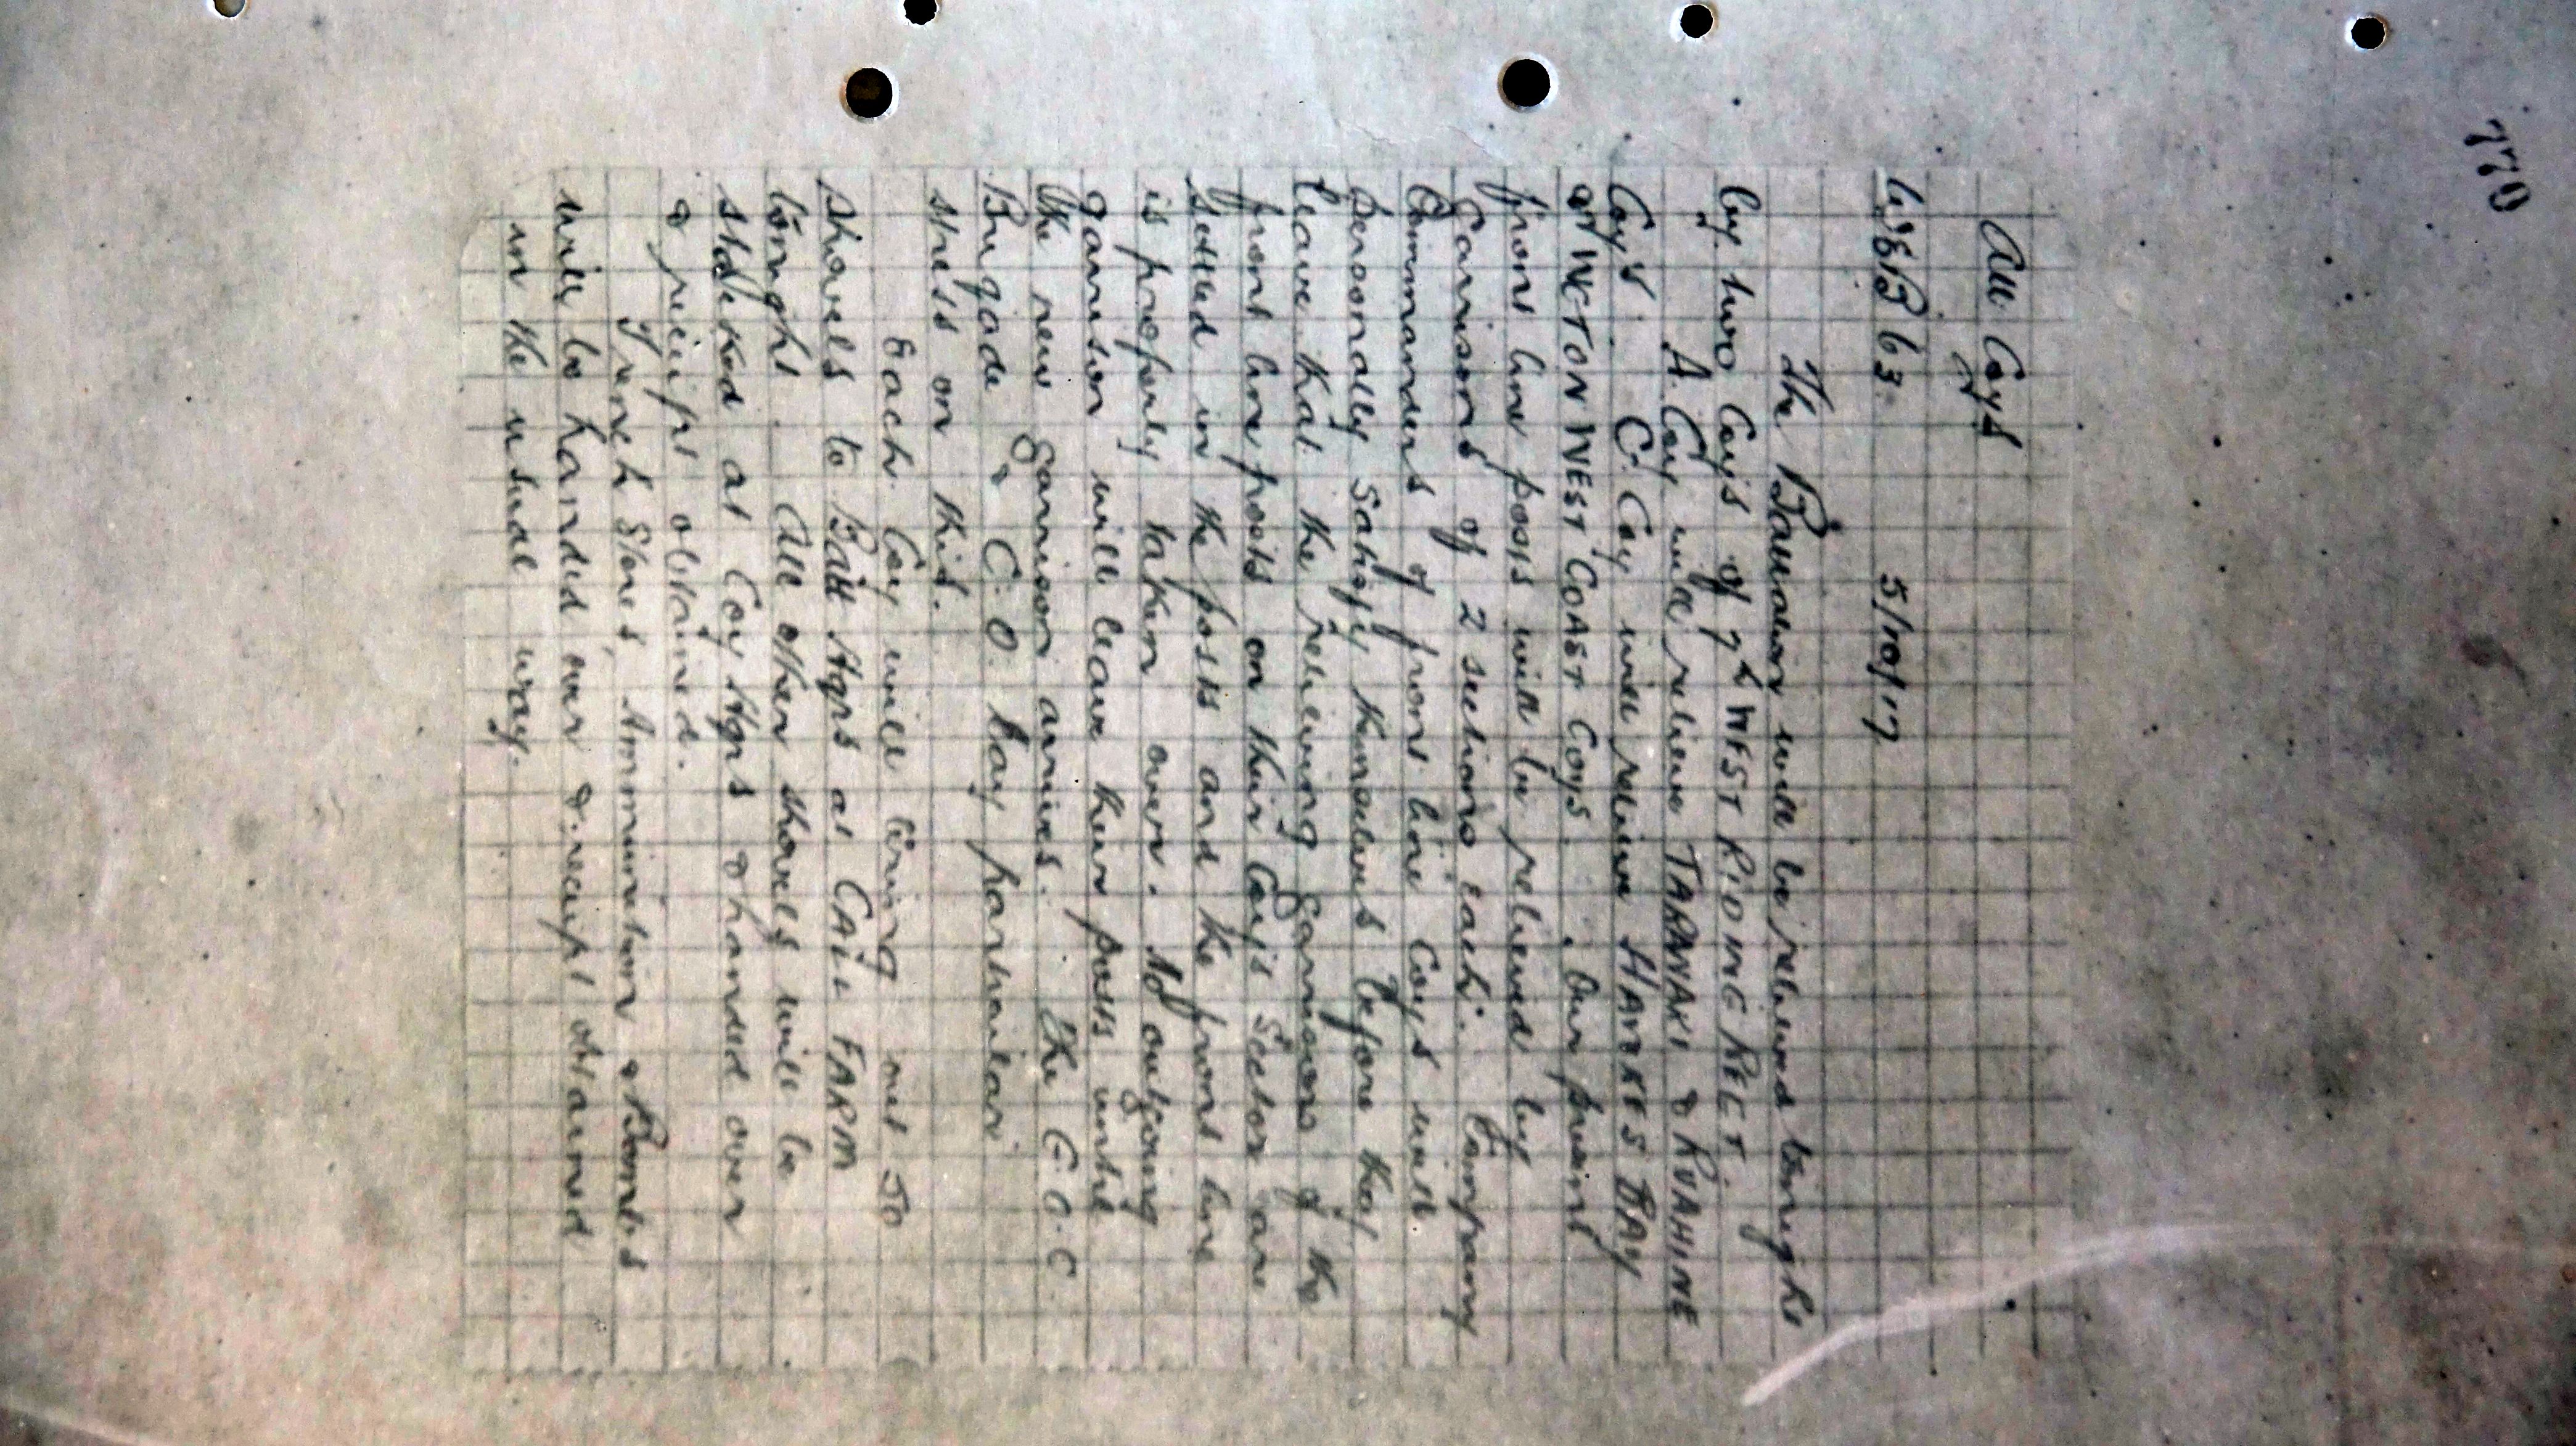 770
All Coys
63. 5/10/17
The Battalion will be relieved tonight
by two Coys of 7th WEST RIDING REGT.
A Coy will relieve TARANAKI & RUAHINE
Coys. C. Coy will relieve HAWKES BAY
WGTON WEST COAST Coys. Our present
front line posts will be relieved by
Garrisons of 2 sections each. Company
Commanders of front line Coys will
personally satisfy themselves before they
leave that the relieving Garrisons of the
front line posts on their Coy's Sector are
settled in the posts and the front line
is properly taken over. No outgoing
garrison will leave their posts until
the new Garrison arrives. The G.O.C.
Brigade & C.O. lay particular
stress on this.
Each Coy will bring out 50
shovels to Batt Hqrs at CALL FARM
tonight. All other shovels will be
stacked at Coy Hqrs & handed over
& receipt obtained.
Trench Stores, Ammunition & Bombs
will be handed over & receipt obtained
in the usual way.